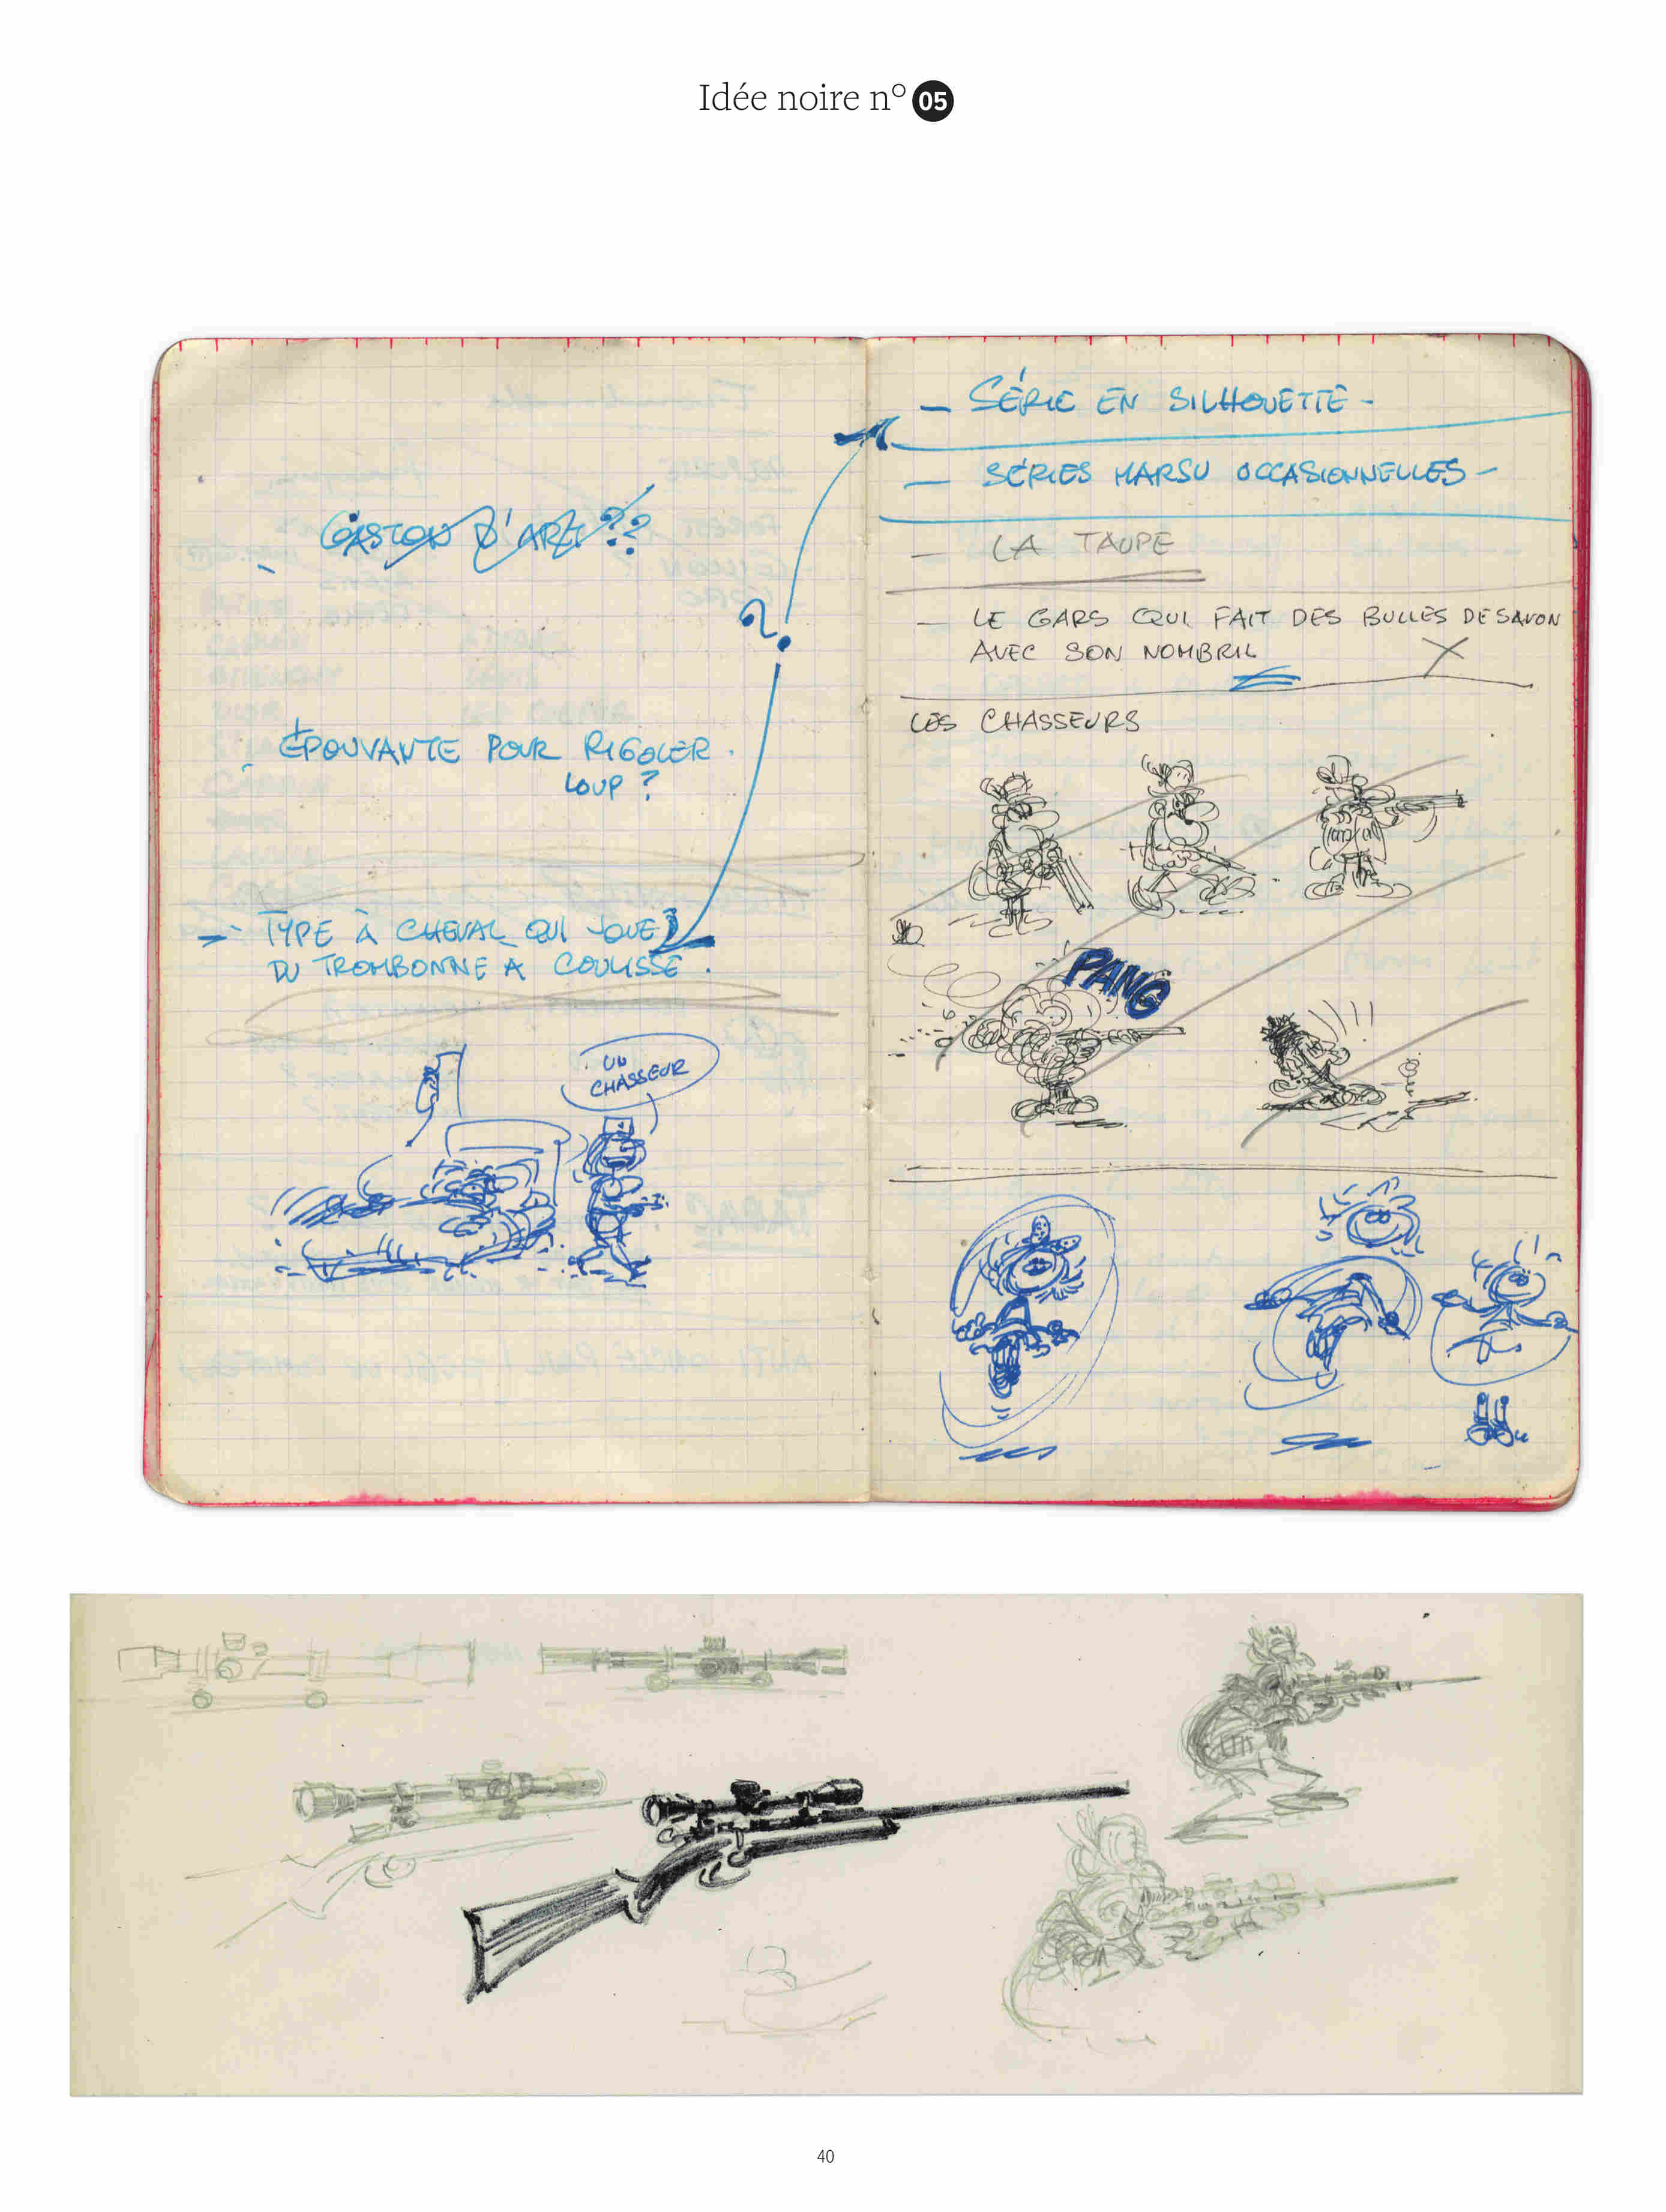 Idée noire n° 05
GASTON D'ART ??
?
+
ÉPOUVANTE POUR RIGOLER.
LOUP ?
- TYPE À CHEVAL QUI JOUE
DU TROMBONNE À COULISSE.
UN
CHASSEUR
- SÉRIE EN SILHOUETTE -
- SÉRIES MARSU OCCASIONNELLES -
- LA TAUPE
- LE GARS QUI FAIT DES BULLES DE SAVON
AVEC SON NOMBRIL X
LES CHASSEURS
PANG
40